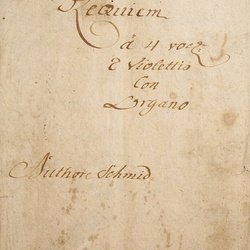 Requiem
à 4 voc:
2 Violettis
Con
Organo
Authore Schmid